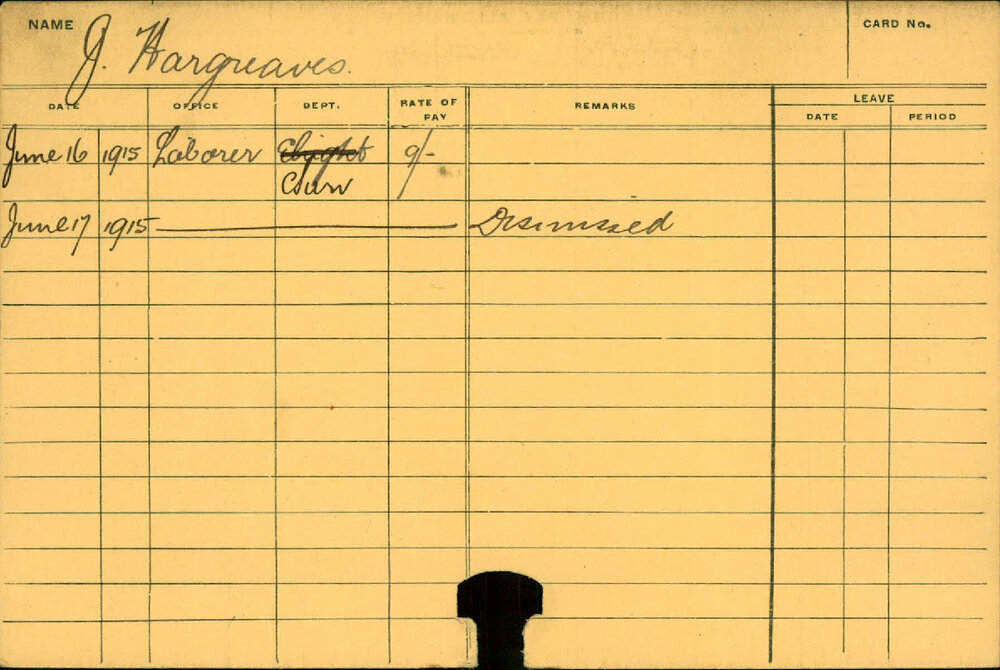 NAME J. Hargreaves. CARD No.
DATE OFFICE DEPT. RATE OF PAY REMARKS LEAVE
DATE PERIOD
June 16 1915 Laborer 9/-
June 17 1915 Dismissed